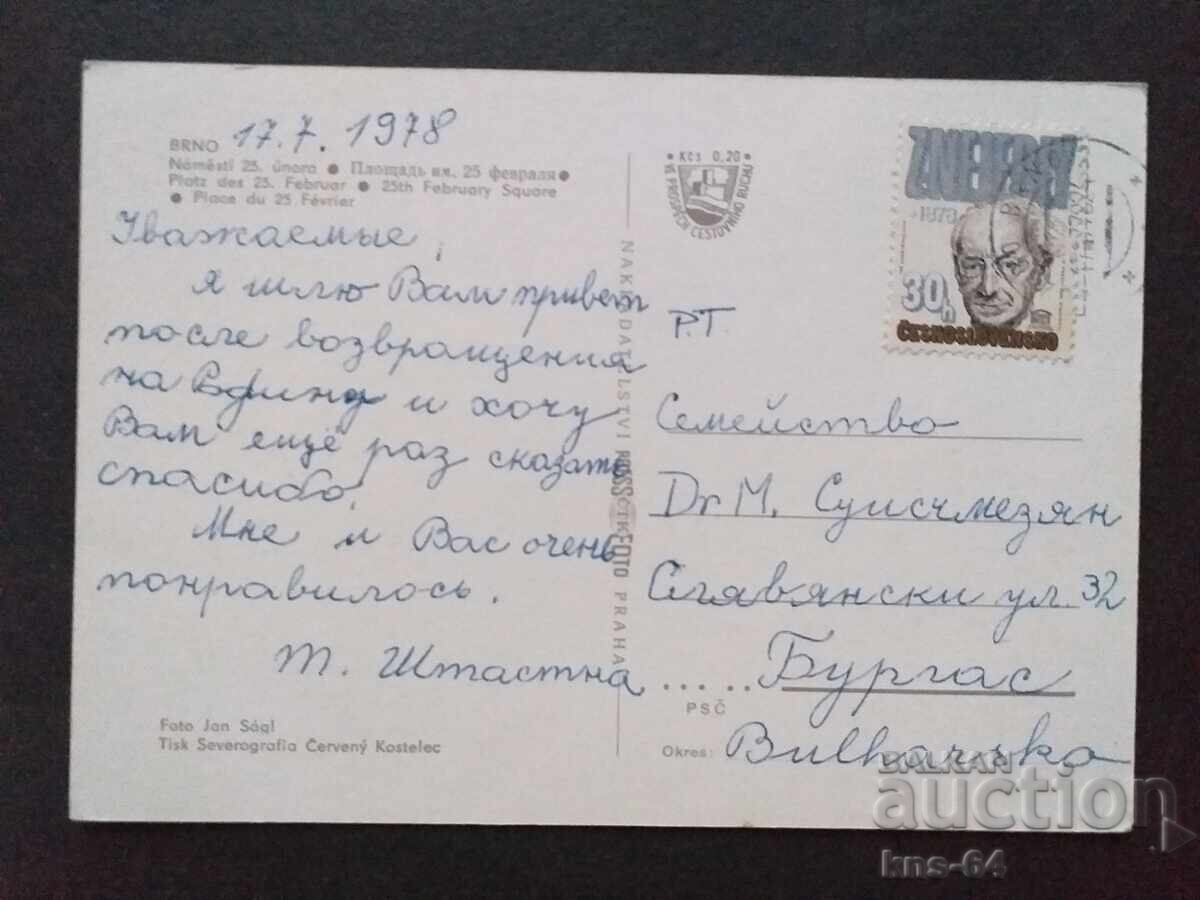 BRNO 17.7.1978
Náměstí 25. února • Площадь им. 25 февраля •
Platz des 25. Februar • 25th February Square
• Place du 25 Février
Уважаемые,
Я шлю Вам привет
после возвращения
на и хочу
Вам ещё раз сказать
спасибо.
Мне и Вас очень
понравилось.
Т. Штастна
Foto Jan Ságl
Tisk Severografia Červený Kostelec
NAKLADATELSTVÍ FOTO PRAHA
Kčs 0,20
VE PROSPĚCH CESTOVNÍHO RUCHU
ZD. NEJEDLÝ
1978
30h
ČESKOSLOVENSKO
P.T.
Семейство
Dr M. Суисчмезян
Славянски ул. 32
Бургас
PSČ
Okres: Bulharsko
BALKAN
auction
kns-64